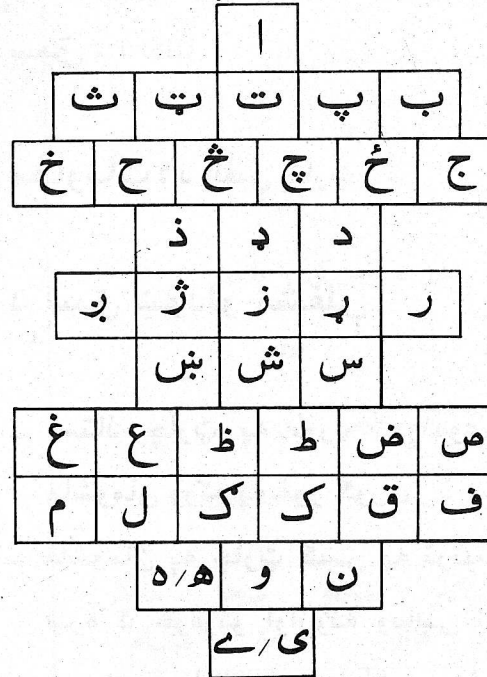 ا
ب پ ت ټ ث
ج ځ چ څ ح خ
د ډ ذ
ر ړ ز ژ ږ
س ش ښ
ص ض ط ظ ع غ
ف ق ک ګ ل م
ن و ھ/ہ
ی/ے